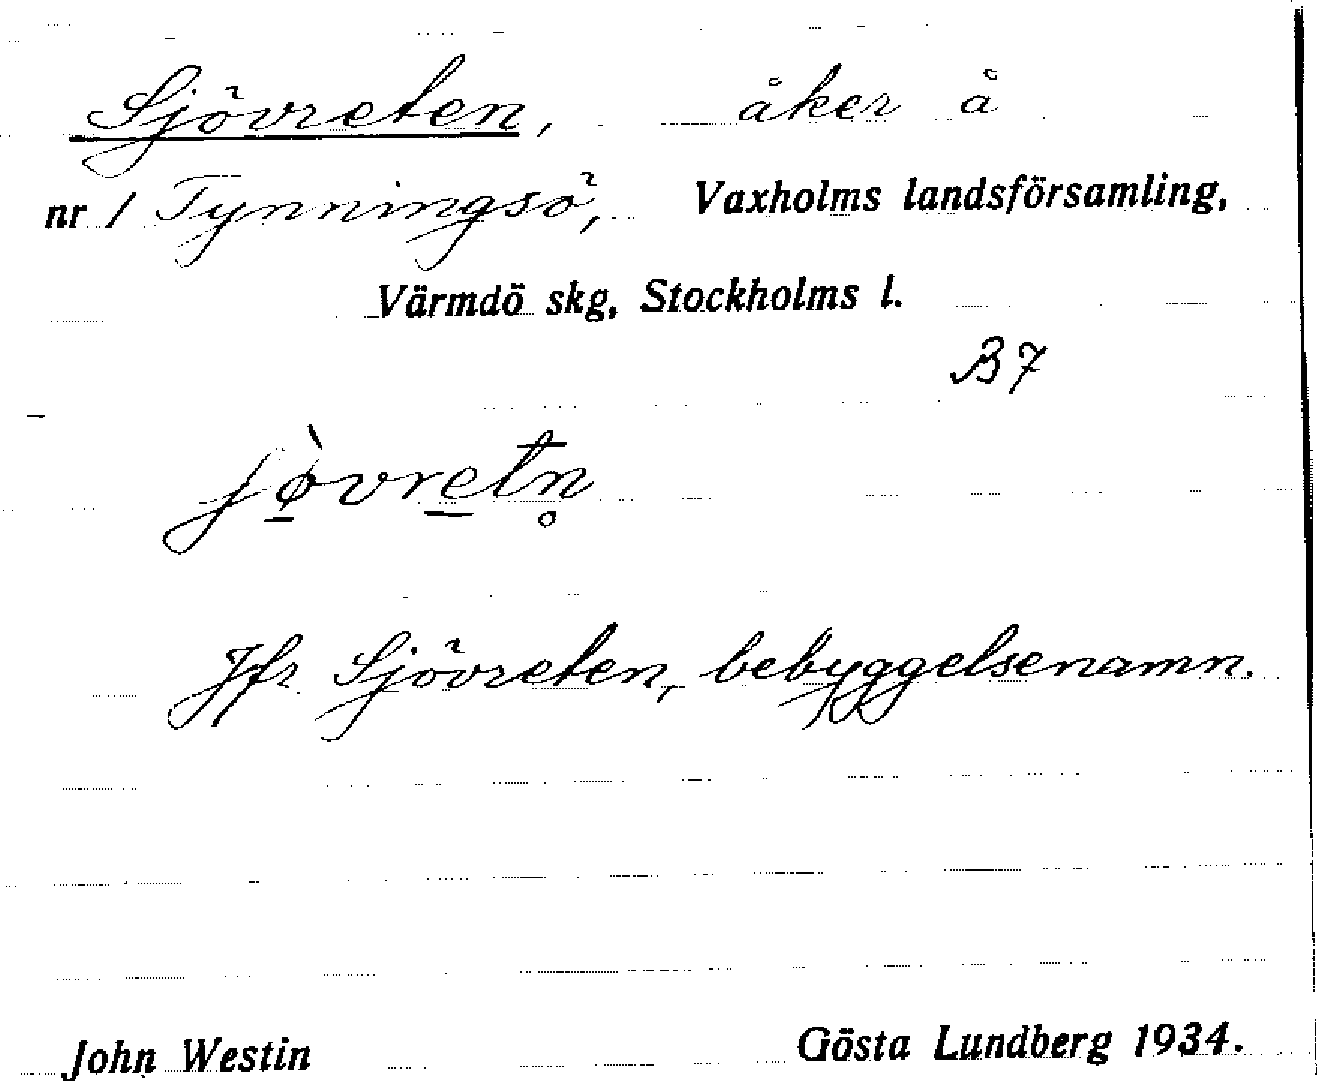 Sjövreten, åker å
nr 1 Tynningsö, Vaxholms landsförsamling,
Värmdö skg, Stockholms l.
B7
ʃø̠̀vre̠tn̥
Jfr Sjövreten, bebyggelsenamn.
John Westin Gösta Lundberg 1934.